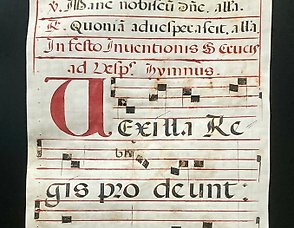 V. Mane nobiscū dn̄e, alla.
R. Quoniā aduesperascit, alla.
In festo Inuentionis S. Crucis
ad Vesp͛. hymnus.
Uexilla Re
gis pro deunt: